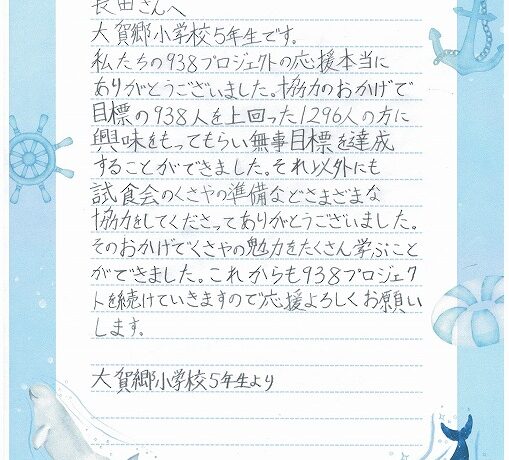 長田さんへ
大賀郷小学校5年生です。
私たちの938プロジェクトの応援本当に
ありがとうございました。協力のおかげで
目標の938人を上回った1296人の方に
興味をもってもらい無事目標を達成
することができました。それ以外にも
試食会のくさやの準備などさまざまな
協力をしてくださってありがとうございました。
そのおかげでくさやの魅力をたくさん学ぶこと
ができました。これからも938プロジェク
トを続けていきますので応援よろしくお願い
します。
大賀郷小学校5年生より